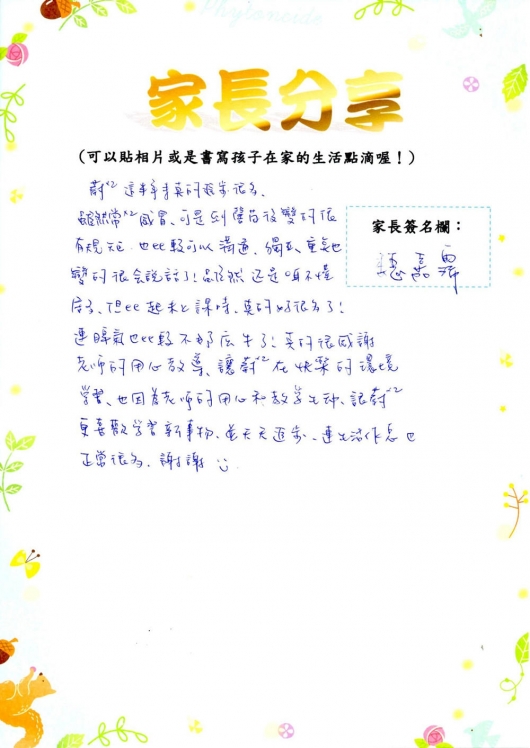 Phytoncide
家長分享
(可以貼相片或是書寫孩子在家的生活點滴喔！)
蔚^2 這半年真的進步很多、
雖然常^2 感冒、可是到學校後變的很
家長簽名欄：
有規矩. 也比較可以溝通、獨立、重點也
變的很會說話了! 雖然還是
但比起未上課時、真的好很多了!
連脾氣也比較不那麼牛了! 真的很感謝
老師的用心教導、讓蔚^2 在快樂的環境
學習、也因為老師的用心和教學 讓蔚^2
更喜歡學習新事物、並天天進步、連生活作息也
正常很多. 謝謝